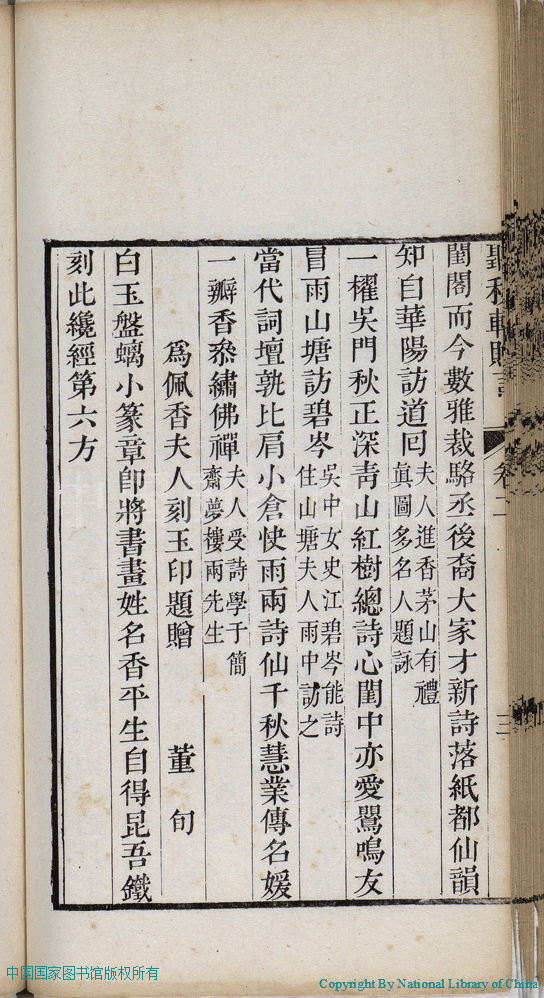 聽秋軒贈言 卷二 三
閨閣而今數雅裁駱丞後裔大家才新詩落紙都仙韻
知自華陽訪道囘
夫人進香茅山有禮
眞圖多名人題詠
一櫂吳門秋正深靑山紅樹總詩心閨中亦愛鸎鳴友
冒雨山塘訪碧岑
吳中女史江碧岑能詩
住山塘夫人雨中訪之
當代詞壇孰比肩小倉快雨兩詩仙千秋慧業傳名媛
一瓣香叅繡佛禪
夫人受詩學于簡
齋夢樓兩先生
爲佩香夫人刻玉印題贈 董旬
白玉盤螭小篆章卽將書畫姓名香平生自得昆吾鐵
刻此纔經第六方
中国国家图书馆版权所有
Copyright By National Library of China